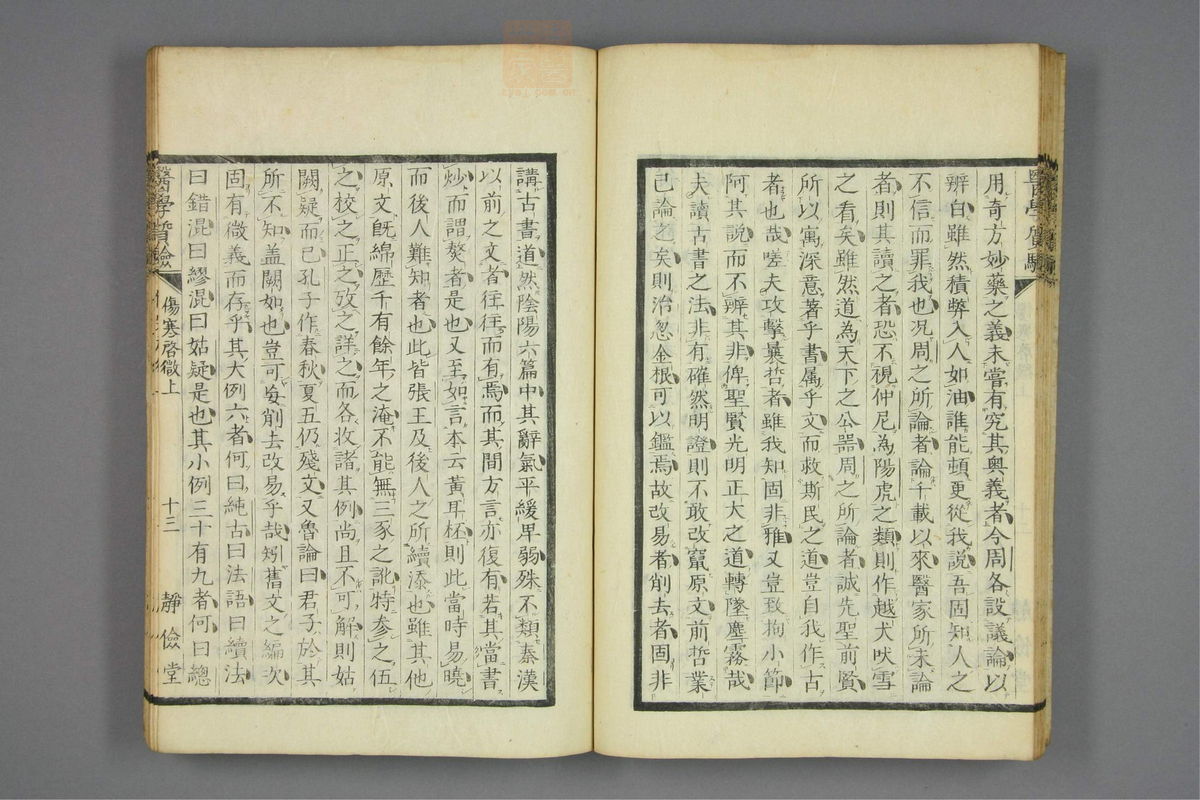 用奇方妙藥之義未嘗有究其奧義者今周各設議論以
辨白雖然積弊入人如油誰能頓更從我說吾固知人之
不信而罪我也况周之所論者論千載以來醫家所未論
者則其讀之者恐不視仲尼為陽虎之類則作越犬吠雪
之看矣雖然道為天下之公器周之所論者誠先聖前賢
所以寓深意著乎書属乎文而救斯民之道豈自我作古
者也哉嗟夫攻擊曩哲者雖我知固非雅又豈致拘小節
阿其說而不辨其非俾聖賢光明正大之道轉墜塵霧哉
夫讀古書之法非有確然明證則不敢改竄原文前哲業
己論之矣則治忽金根可以鑑焉故改易者削去者固非
講古書道然陰陽六篇中其辭氣平緩卑弱殊不類秦漢
以前之文者往往而有焉而其間方言亦復有若其當書
炒而謂熬者是也又至如言本云黃耳杯則此當時易曉
而後人難知者也此皆張王及後人之所續添也雖其他
原文既綿歷千有餘年之淹不能無三豕之訛特參之伍
之校之正之攷之詳之而各收諸其例尚且不可解則姑
闕疑而已孔子作春秋夏五仍殘文又魯論曰君子於其
所不知盖闕如也豈可妄削去改易乎哉矧舊文之編次
固有徵義而存乎其大例六者何曰純古曰法語曰續法
曰錯混曰繆混曰姑疑是也其小例三十有九者何曰總
醫學質驗
傷寒啓微上
十三
靜儉堂